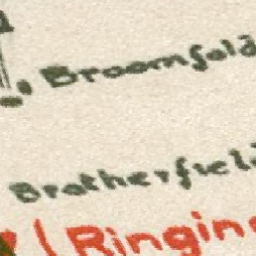 Broomfold
Bratherfiel
Ringin